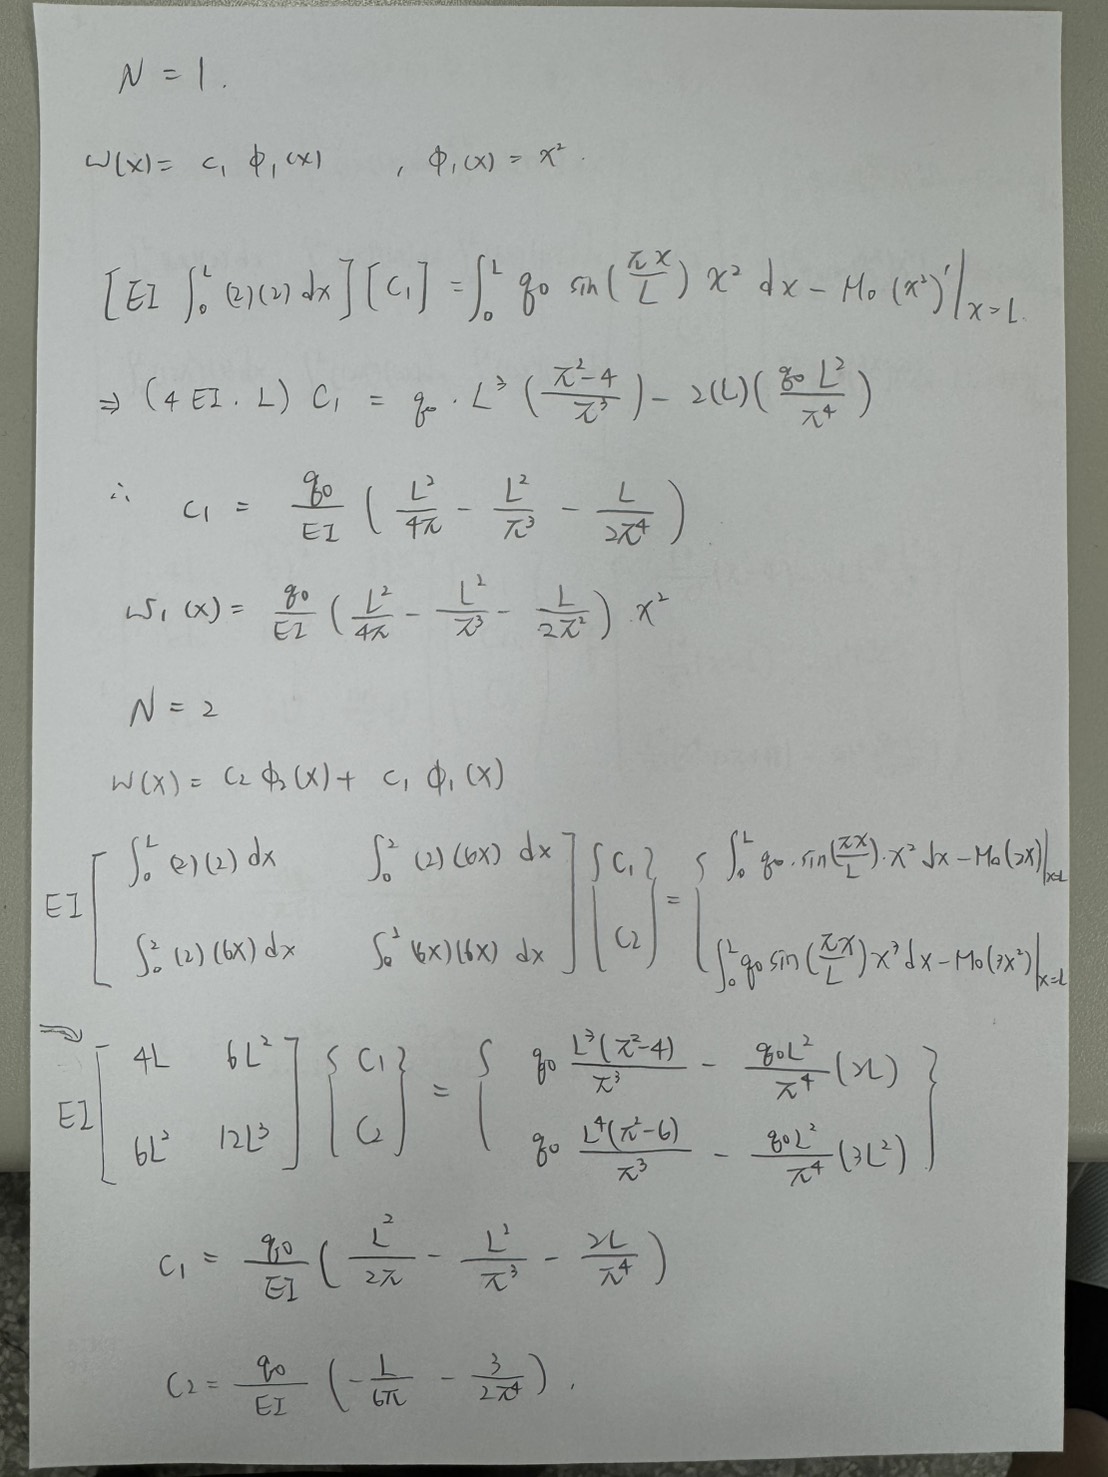 N = 1.
w(x) = c₁ ϕ₁(x) , ϕ₁(x) = x².
[EI ∫₀ᴸ (2)(2) dx][C₁] = ∫₀ᴸ q₀ sin(πx/L) x² dx − M₀(x²)'|ₓ₌L
⇒ (4EI · L) C₁ = q₀ · L³ ((π²−4)/π³) − 2(L)(q₀L²/π⁴)
∴ C₁ = q₀/EI (L²/4π − L²/π³ − L/2π⁴)
w₁(x) = q₀/EI (L²/4π − L²/π³ − L/2π²) x²
N = 2
w(x) = C₂ ϕ₂(x) + C₁ ϕ₁(x)
EI [∫₀ᴸ (2)(2) dx ∫₀² (2)(6x) dx; ∫₀² (2)(6x) dx ∫₀² (6x)(6x) dx] {C₁; C₂} = {∫₀ᴸ q₀ · sin(πx/L) · x² dx − M₀(2x)|ₓ₌L; ∫₀² q₀ sin(πx/L) x³ dx − M₀(3x²)|ₓ₌L
⇒ EI [4L 6L²; 6L² 12L³] {C₁; C₂} = {q₀ L³(π²−4)/π³ − q₀L²/π⁴ (2L); q₀ L⁴(π²−6)/π³ − q₀L²/π⁴ (3L²)}
C₁ = q₀/EI (L²/2π − L²/π³ − 2L/π⁴)
C₂ = q₀/EI (−L/6π − 3/2π⁴).